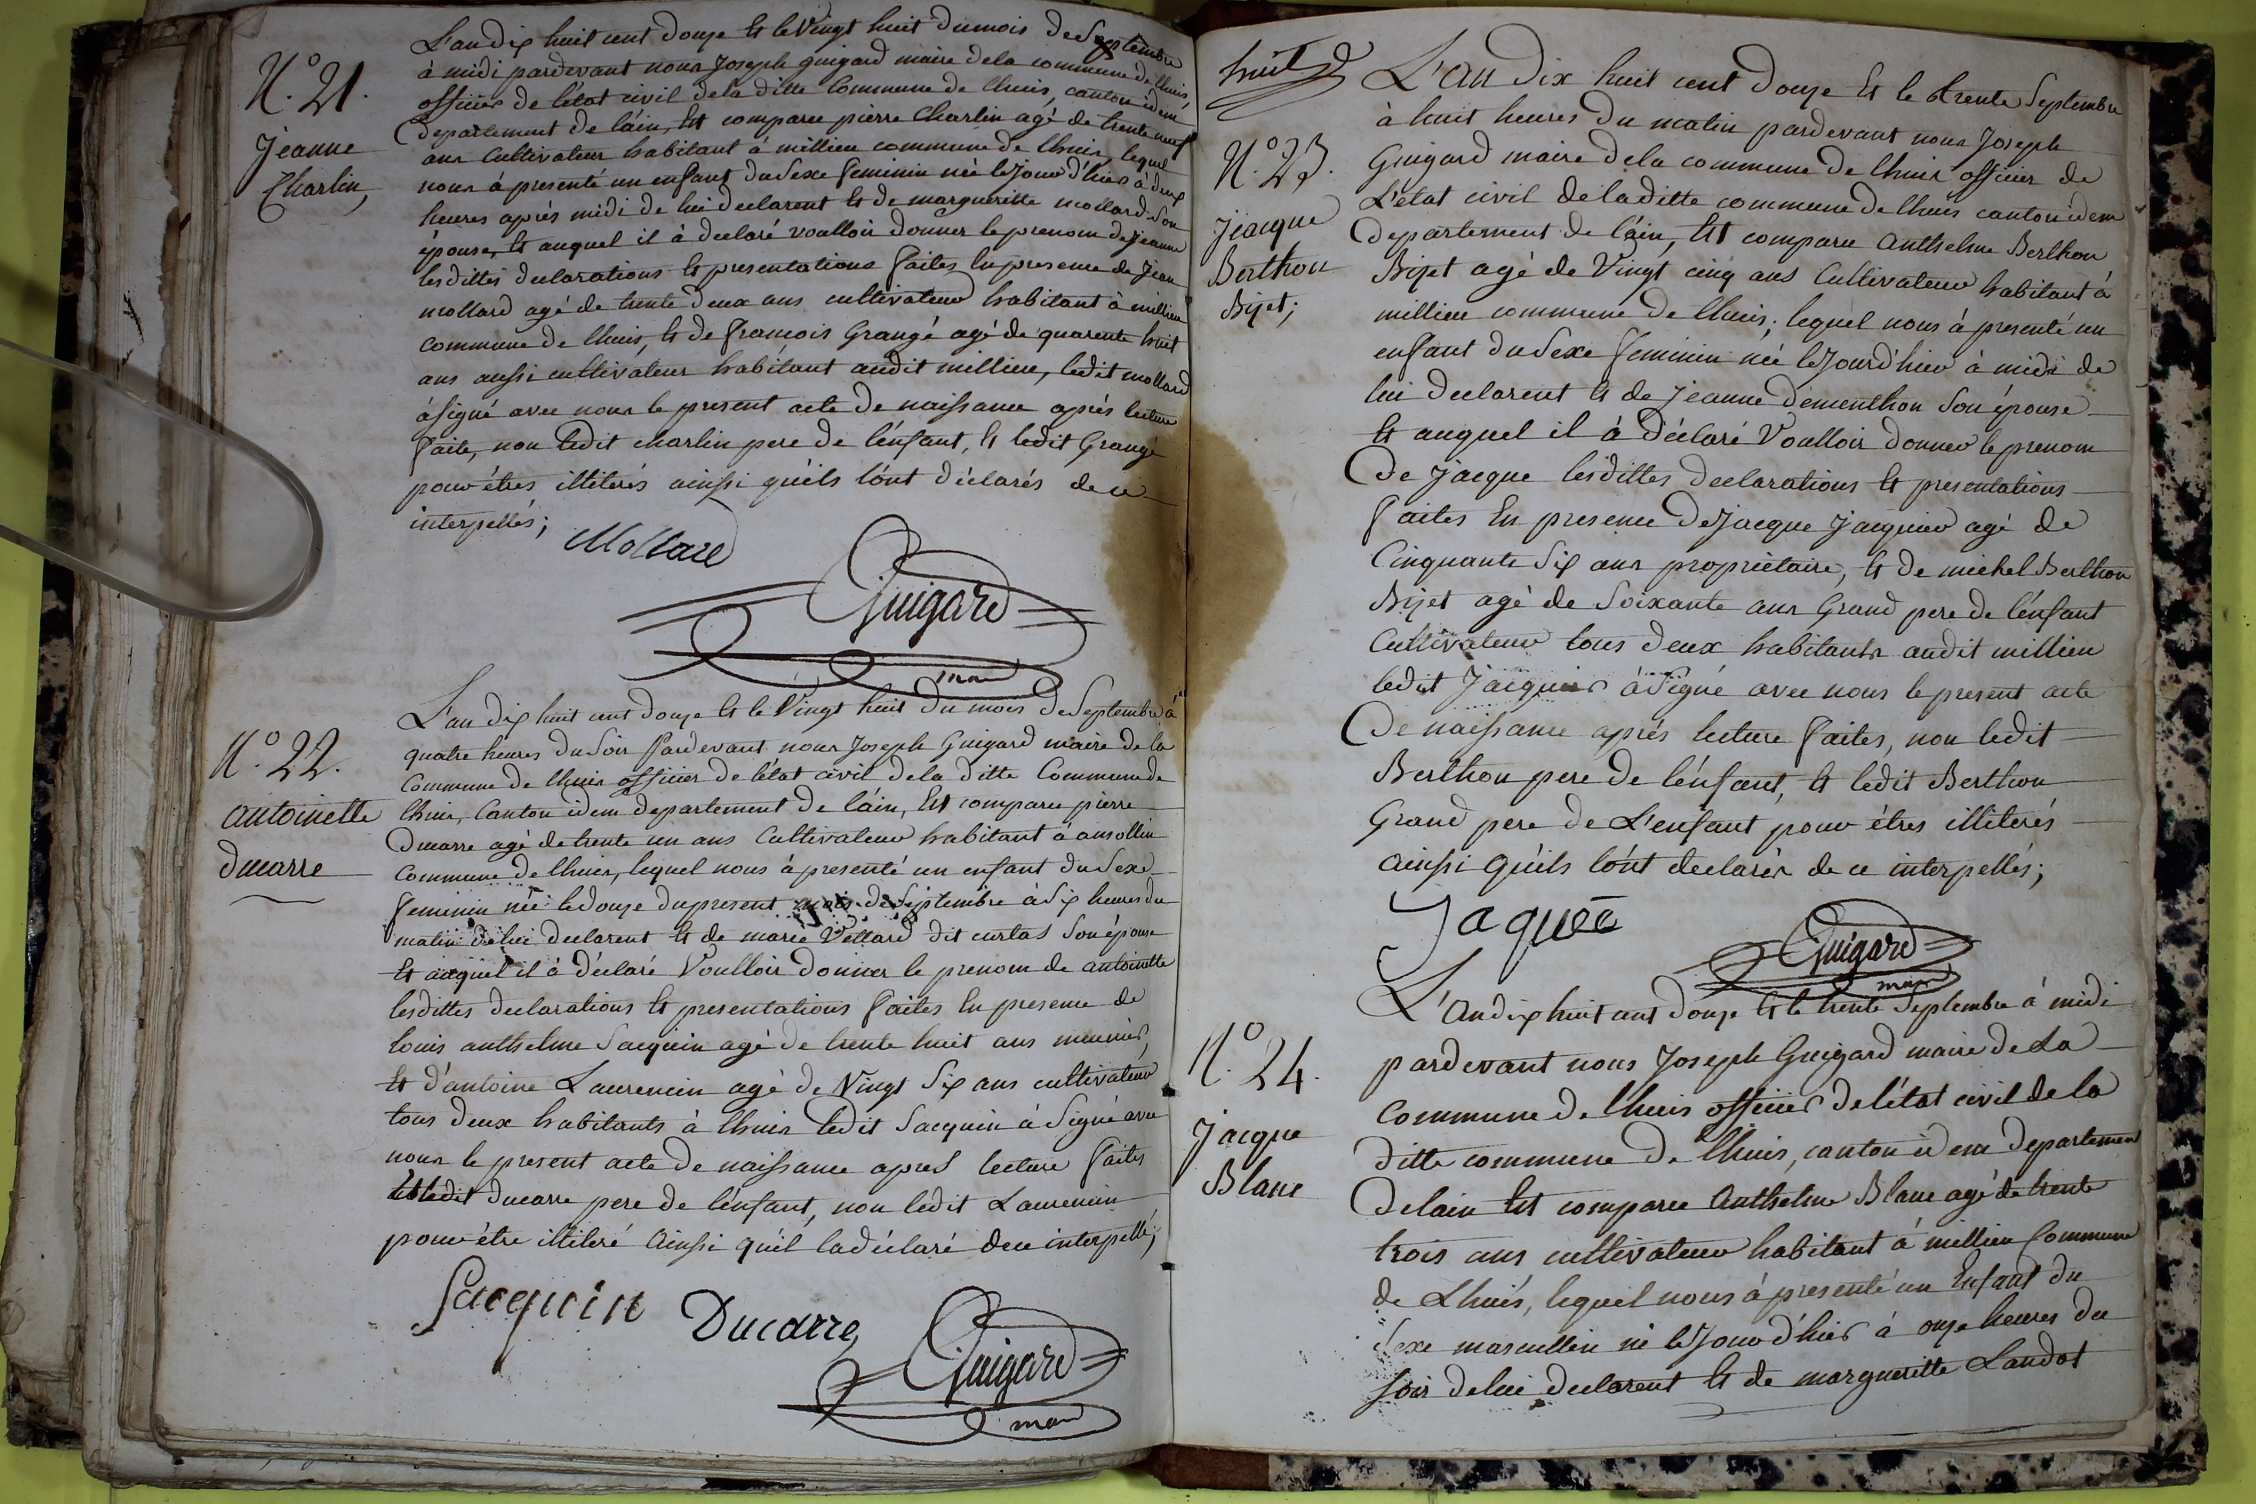 N.° 21.
Jéanne
Charlin,
L'an dix huit cent douze Et le Vingt huit du mois de Septembre
à midi pardevant nous Joseph guigard maire de la commune de lhuis,
officier de l'état civil de la ditte Commune de lhuis, canton idem
Departement de l'áin, Est comparu pierre Charlin agé de trente neuf
ans Cultivateur habitant á millieu commune de lhuis, lequel
nous á presenté un enfant du Sexe feminin née le jour d'hier á deux
heures aprés midi de lui declarent Et de margueritte mollard Son
épouse, Et auquel il à declaré voulloir donner le prenom de Jeanne
lesdittes declarations Et presentations faites En presence de Jean
mollard agé de trente deux ans cultivateur habitant á millieu
commune de lhuis, Et de francois Grangé agé de quarente huit
ans aussi cultivateur habitant audit millieu, ledit mollard
á signé avec nous le present acte de naissance aprés lecture
faite, non ledit charlin pere de l'énfant, Et ledit Grangé
pour étres illiterés ainsi qu'éils lónt déclarés de ce
interpellés;
Mollard
Guigard
maire
N.° 22.
antoinette
ducarre
L'an dix huit cent douze Et le Vingt huit du mois de Septembre á
quatre heures du Soir Pardevant nous Joseph Guigard maire de la
Commune de lhuis officier de l'état civil de la ditte Commune de
lhuis, Canton idem departement de l'áin, Est comparu pierre
Ducarre agé de trente un ans Cultivateur habitant á ansollin
Commune de lhuis, lequel nous á presenté un enfant du Sexe
feminin née le douze du present mois de Septembre á Six heures du
matin de lui declarent Et de marie Vettard dit curtas Son épouse
Et auquel il à déclaré Voulloir donner le prenom de antoinette
lesdittes declarations Et presentations faites En presence de
louis anthelme Sacquin agé de trente huit ans meunier,
Et d'antoine Laurencin agé de Vingt Six ans cultivateur
tous deux habitants à lhuis ledit Sacquin á Signé avec
nous le present acte de naissance aprés lecture faites
Et ledit ducarre pere de l'énfant, non ledit Laurencin
pour étre illiteré Ainsi qu'éil la déclaré de ce interpellé;
Sacquin Ducarre,
Guigard
maire
huit
N.° 23.
Jácque
Berthon
Bijet;
L'an dix huit cent douze Et le trente Septembre
à huit heures du matin pardevant nous Joseph
Guigard maire de la commune de lhuis officier de
L'état civil de la ditte commune de lhuis canton idem
Departement de l'áin, Est comparu Anthelme Berthon
Bijet agé de Vingt cinq ans Cultivateur habitant á
millieu commune de lhuis; lequel nous á presenté un
enfant du Sexe feminin née le Jourd'hier à midi de
lui declarent Et de Jeanne démenthon Son épouse
Et auquel il á déclaré Voulloir donner le prenom
De Jacque lesdittes declarations Et presentations
faites En presence de Jacque Jacquier agé de
Cinquante Six ans propriétaire, Et de michel Berthon
Bijet agé de Soixante ans Grand pere de l'énfant
Cultivateur tous deux habitants audit millieu
ledit Jacquier á Signé avec nous le present acte
De naissance aprés lecture faites, non ledit
Berthon pere de l'énfant, Et ledit Berthon
Grand pere de L'enfant pour étres illiterés
ainssi qu'éils lónt declarés de ce interpellés;
Jaquée
Guigard
maire
N.° 24.
Jacque
Blanc
L'An dix huit cent douze Et le trente Septembre á midi
pardevant nous Joseph Guigard maire de La
Commune de lhuis officier de l'état civil de la
ditte commune de lhuis, canton idem departement
De lain Est comparu Anthelme Blanc agé de trente
trois ans cultivateur habitant á millieu Commune
de Lhuis, lequel nous á presenté un Enfant du
Sexe mascullin né le Jour d'hier á onze heures du
Soir de lui declarent Et de margueritte Landot